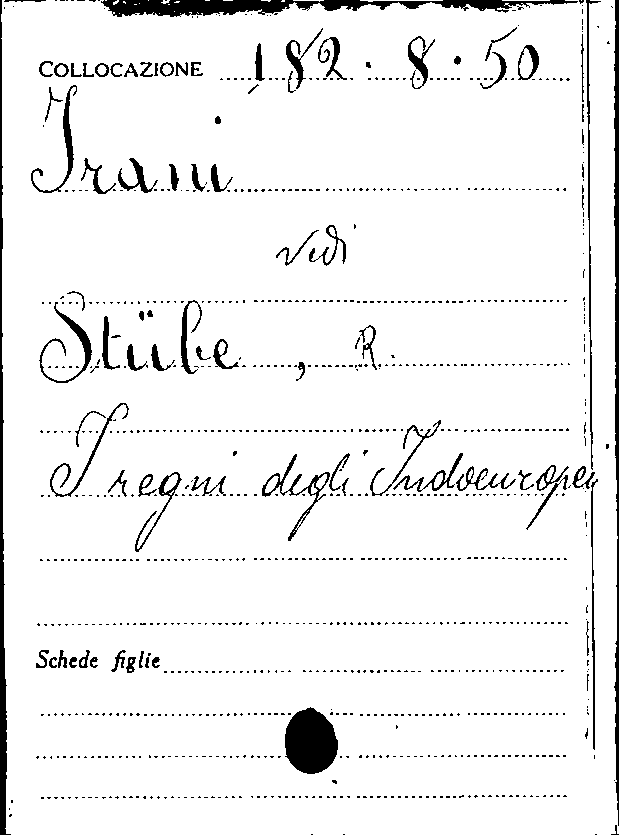 COLLOCAZIONE 182.8.50
Irani
vedi
Stübe, R.
I regni degli Indoeuropei
Schede figlie